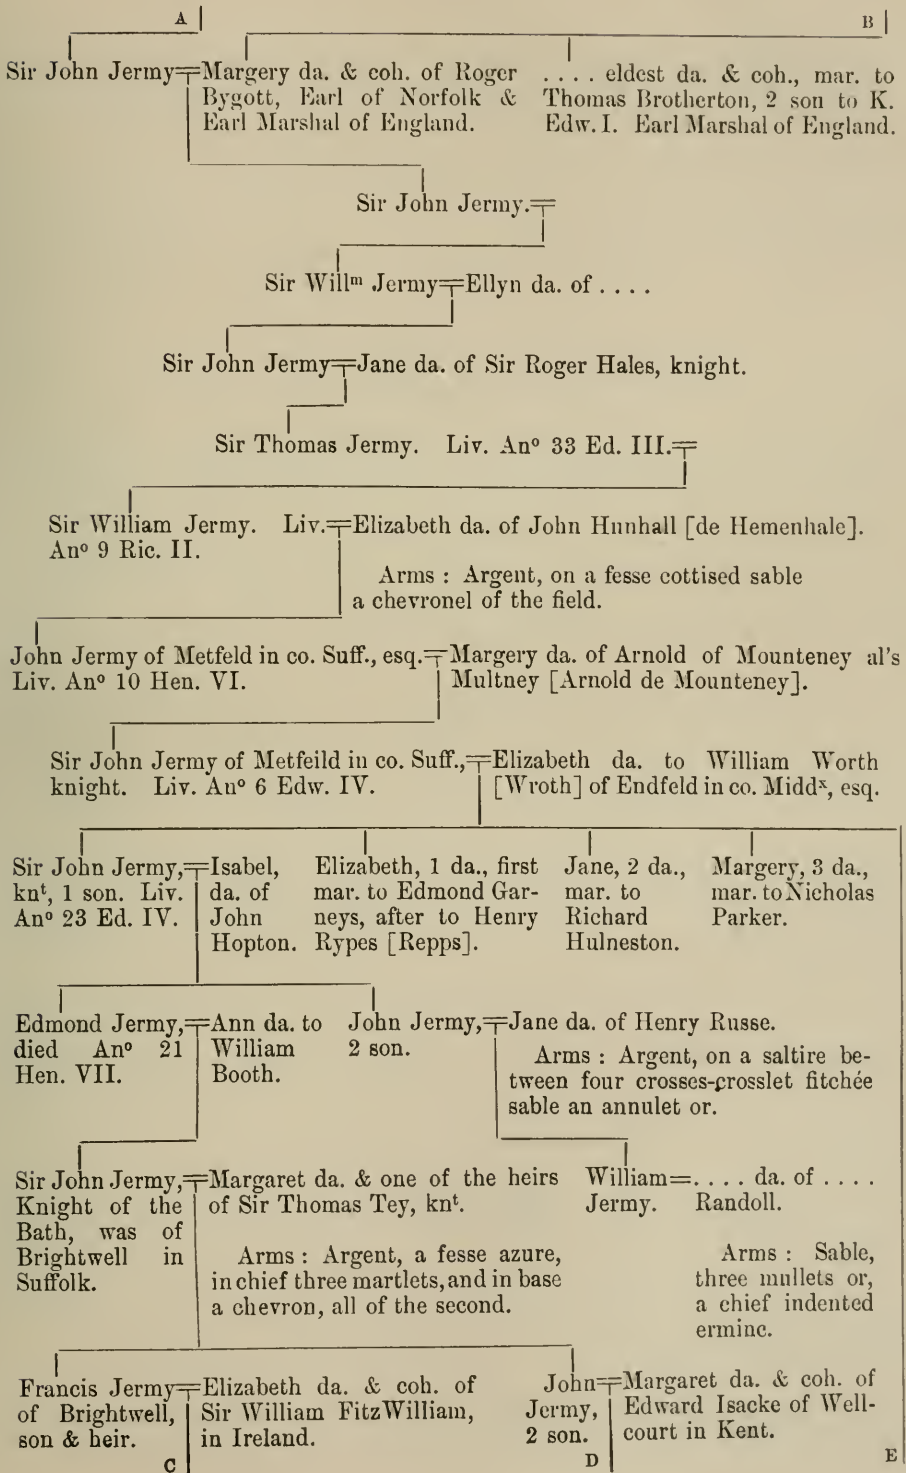 A B
Sir John Jermy Margery da. & coh. of Roger
Bygott, Earl of Norfolk &
Earl Marshal of England.
. . . . eldest da. & coh., mar. to
Thomas Brotherton, 2 son to K.
Edw. I. Earl Marshal of England.
Sir John Jermy.
Sir Willᵐ Jermy Ellyn da. of . . . .
Sir John Jermy Jane da. of Sir Roger Hales, knight.
Sir Thomas Jermy. Liv. Anᵒ 33 Ed. III.
Sir William Jermy. Liv.
Anᵒ 9 Ric. II.
Elizabeth da. of John Hunhall [de Hemenhale].
Arms : Argent, on a fesse cottised sable
a chevronel of the field.
John Jermy of Metfeld in co. Suff., esq.
Liv. Anᵒ 10 Hen. VI.
Margery da. of Arnold of Mounteney al's
Multney [Arnold de Mounteney].
Sir John Jermy of Metfeild in co. Suff.,
knight. Liv. Anᵒ 6 Edw. IV.
Elizabeth da. to William Worth
[Wroth] of Endfeld in co. Middˣ, esq.
Sir John Jermy,
knᵗ, 1 son. Liv.
Anᵒ 23 Ed. IV.
Isabel,
da. of
John
Hopton.
Elizabeth, 1 da., first
mar. to Edmond Gar-
neys, after to Henry
Rypes [Repps].
Jane, 2 da.,
mar. to
Richard
Hulneston.
Margery, 3 da.,
mar. to Nicholas
Parker.
Edmond Jermy,
died Anᵒ 21
Hen. VII.
Ann da. to
William
Booth.
John Jermy,
2 son.
Jane da. of Henry Russe.
Arms : Argent, on a saltire be-
tween four crosses-crosslet fitchée
sable an annulet or.
Sir John Jermy,
Knight of the
Bath, was of
Brightwell in
Suffolk.
Margaret da. & one of the heirs
of Sir Thomas Tey, knᵗ.
Arms : Argent, a fesse azure,
in chief three martlets, and in base
a chevron, all of the second.
William
Jermy.
. . . . da. of . . . .
Randoll.
Arms : Sable,
three mullets or,
a chief indented
ermine.
Francis Jermy
of Brightwell,
son & heir.
Elizabeth da. & coh. of
Sir William FitzWilliam,
in Ireland.
John
Jermy,
2 son.
Margaret da. & coh. of
Edward Isacke of Well-
court in Kent.
C D E